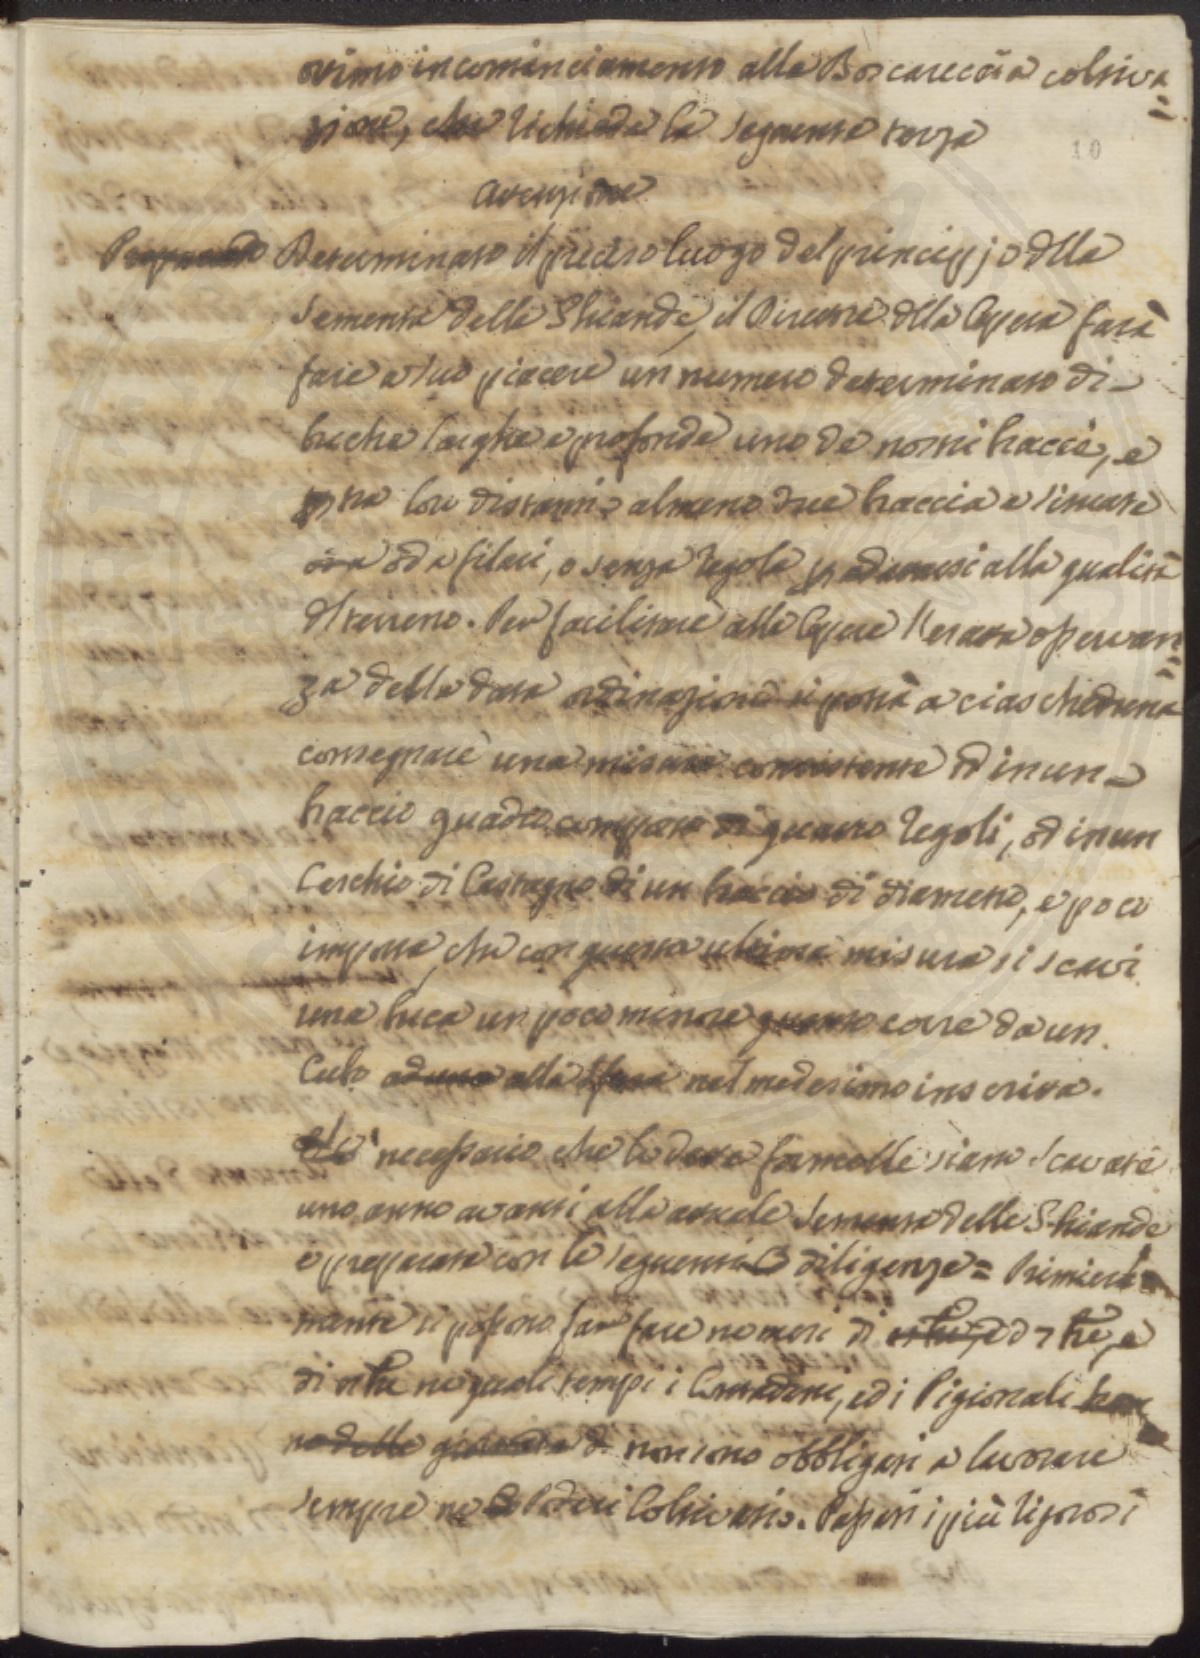 ottimo incominciamento alla Boscareccia coltiva=
zione, che richiede la seguente terza
10
Attenzione
Preparato Determinato il preciso luogo del principjo dlla
sementa delle Ghiande, il Direttore dlla Opera farà
fare a suo piacere un numero determinato di
buche larghe e profonde uno de nostri braccie, e
tra loro distanti almeno due braccia e situate
ora od a filari, o senza regola adattarsi alla qualità
dl terreno. Per facilitare alle Opere l'esatta osservan=
za della data ordinazione si potrà a ciascheduna
consegnare una misura consistente od in un
braccio quadro composto di quattro regoli, od in un
Cerchio di Castagno di un braccio di diametro, e poco
importa, che con questa ultima misura si scavi
una buca un poco minore quanto corre da un
Cubo ad una alla sfera nel medesimo inscritta.
necessario che le dette formelle siano scavate
uno anno avanti alla attuale sementa delle Ghiande
e preparate con le seguenti diligenze = Primiera
mente si possono far fare ne mesi di 7bre, e
di 8bre ne quali tempi i Contadini, ed i Pigionali
no delle giornate non sono obbligati a lavorare
sempre ne Poderi Coltivati. Passati i più rigorosi